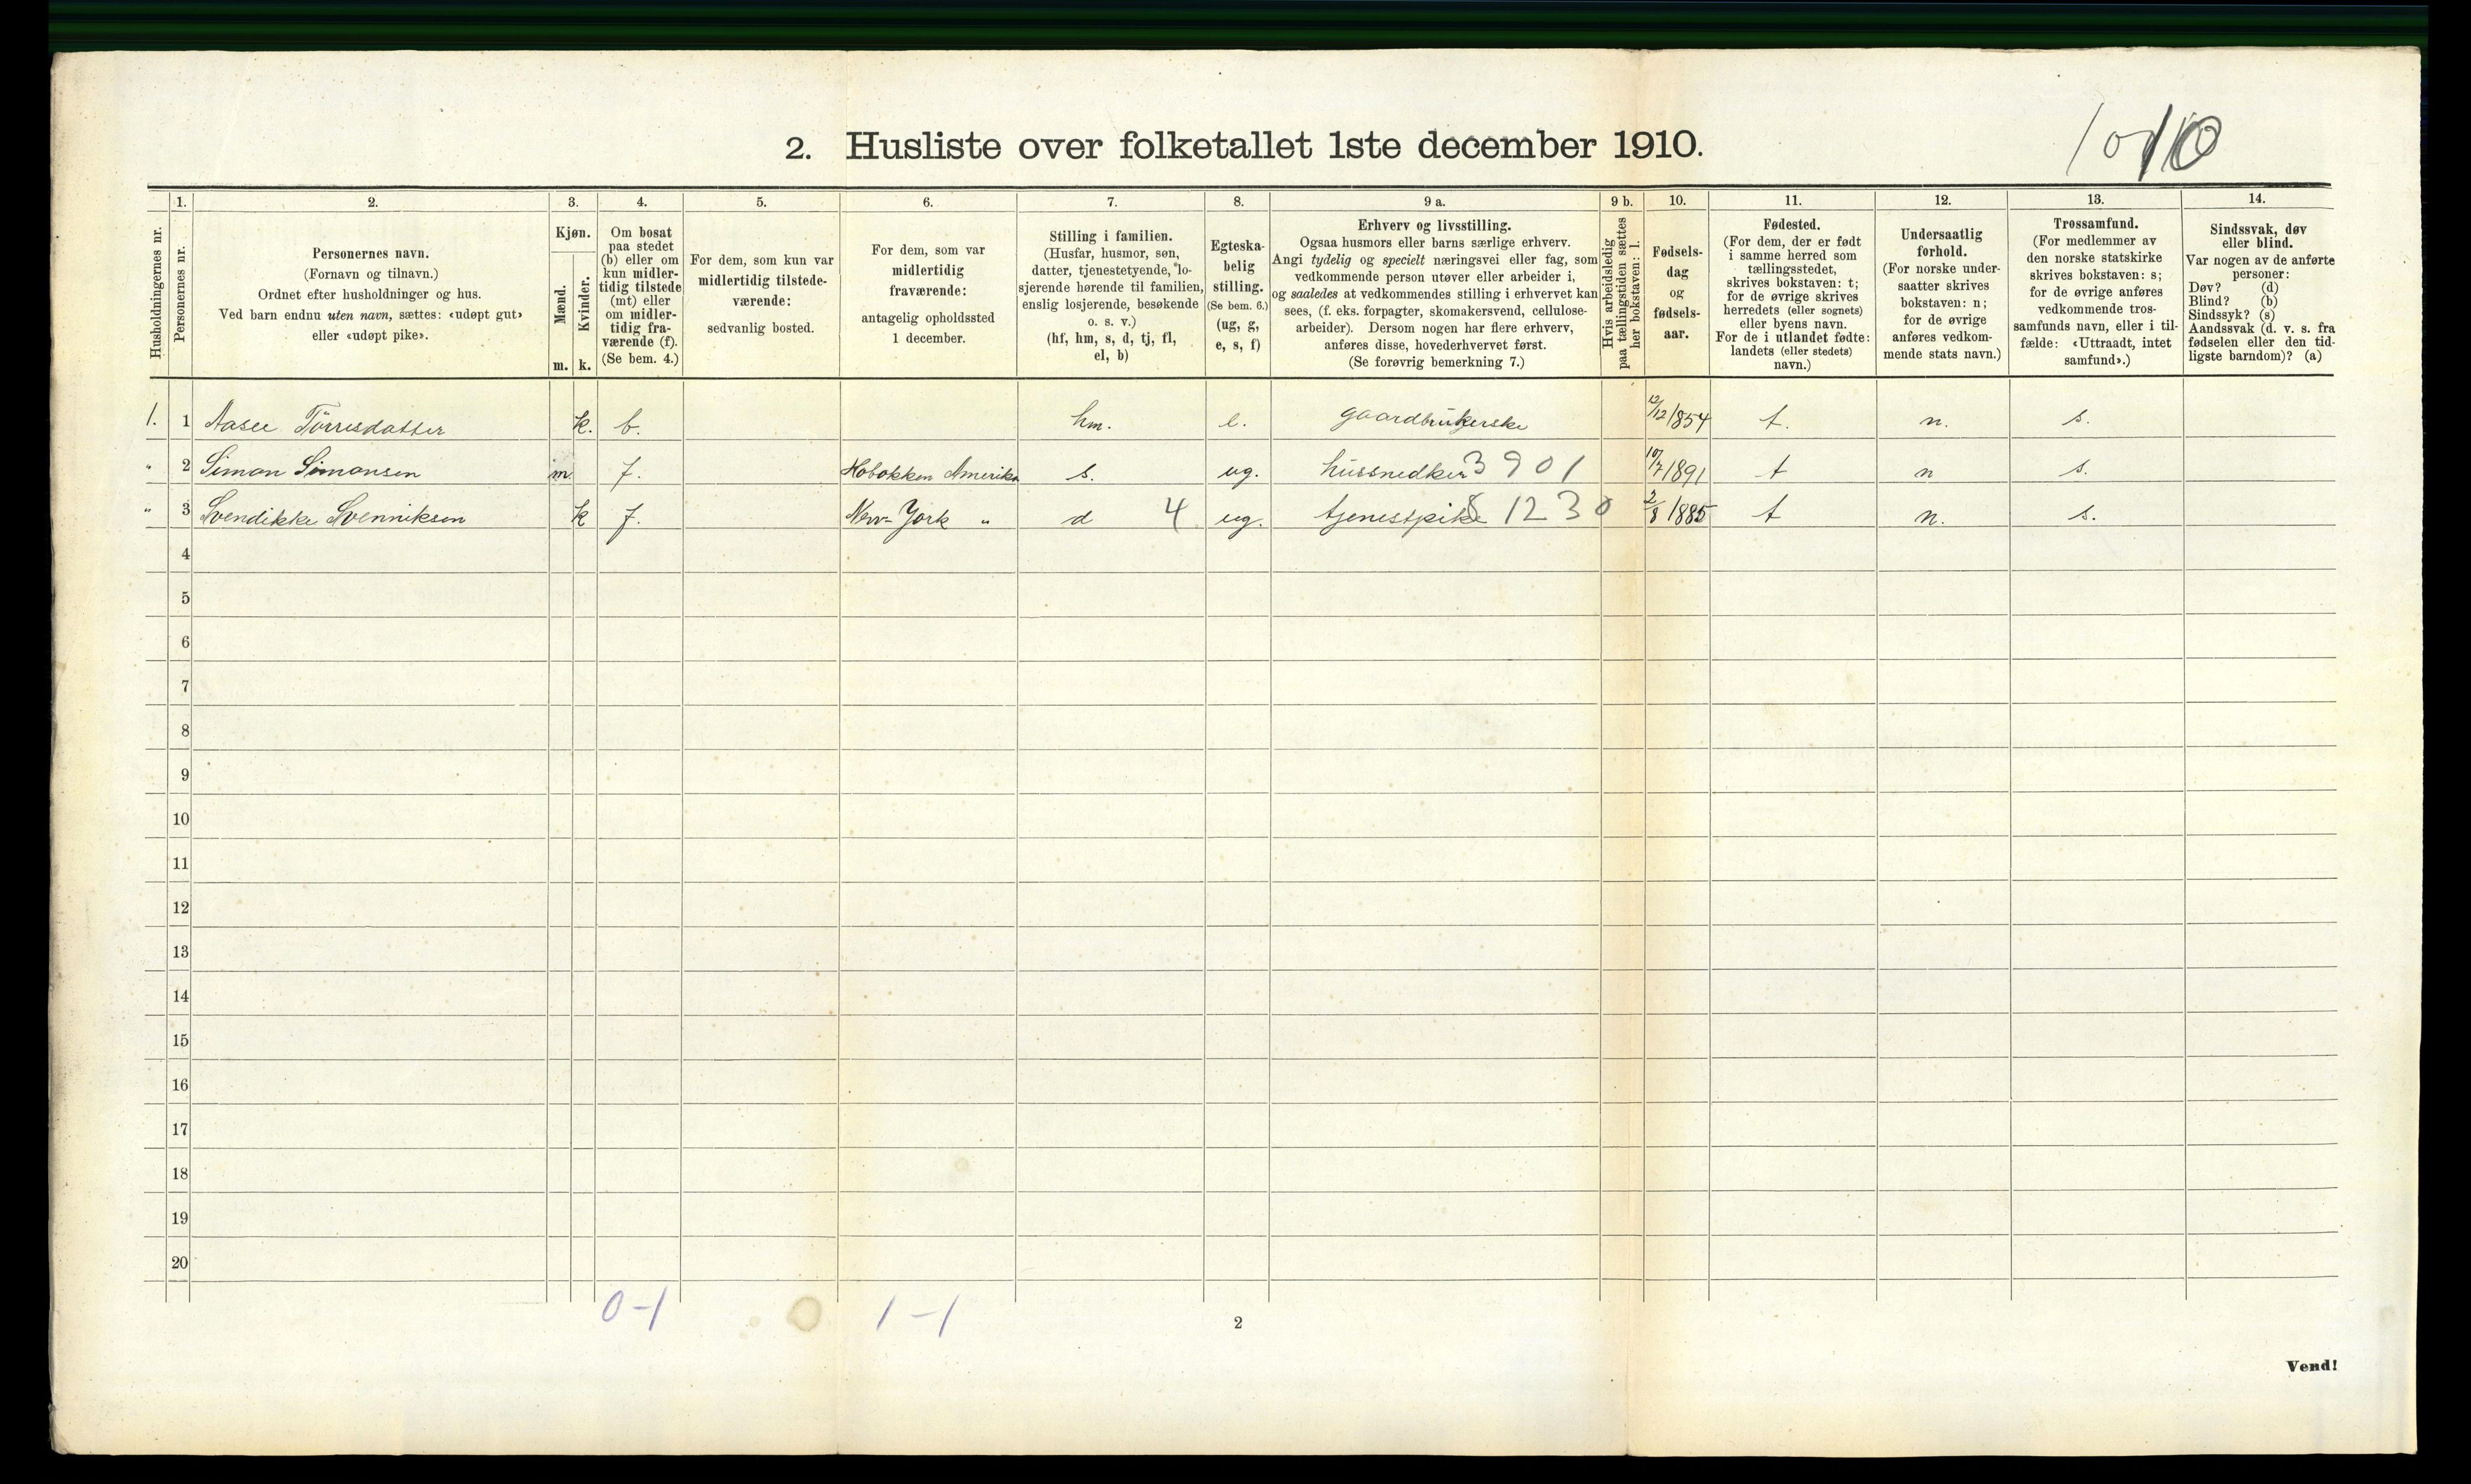 1010
2. Husliste over folketallet 1ste december 1910.
Husholdningernes nr.
1.
Personernes nr.
2.
Personernes navn.
(Fornavn og tilnavn.)
Ordnet efter husholdninger og hus.
Ved barn endnu uten navn, sættes: «udøpt gut»
eller «udøpt pike».
3.
Kjøn.
Mænd.
Kvinder.
m. k.
4.
Om bosat
paa stedet
(b) eller om
kun midler-
tidig tilstede
(mt) eller
om midler-
tidig fra-
værende (f).
(Se bem. 4.)
5.
For dem, som kun var
midlertidig tilstede-
værende:
sedvanlig bosted.
6.
For dem, som var
midlertidig
fraværende:
antagelig opholdssted
1 december.
7.
Stilling i familien.
(Husfar, husmor, søn,
datter, tjenestetyende, lo-
sjerende hørende til familien,
enslig losjerende, besøkende
o. s. v.)
(hf, hm, s, d, tj, fl,
el, b)
8.
Egteska-
belig
stilling.
(Se bem. 6.)
(ug, g,
e, s, f)
9 a.
Erhverv og livsstilling.
Ogsaa husmors eller barns særlige erhverv.
Angi tydelig og specielt næringsvei eller fag, som
vedkommende person utøver eller arbeider i,
og saaledes at vedkommendes stilling i erhvervet kan
sees, (f. eks. forpagter, skomakersvend, cellulose-
arbeider). Dersom nogen har flere erhverv,
anføres disse, hovederhvervet først.
(Se forøvrig bemerkning 7.)
9 b.
Hvis arbeidsledig
paa tællingstiden sættes
her bokstaven: l.
10.
Fødsels-
dag
og
fødsels-
aar.
11.
Fødested.
(For dem, der er født
i samme herred som
tællingsstedet,
skrives bokstaven: t;
for de øvrige skrives
herredets (eller sognets)
eller byens navn.
For de i utlandet fødte:
landets (eller stedets)
navn.)
12.
Undersaatlig
forhold.
(For norske under-
saatter skrives
bokstaven: n;
for de øvrige
anføres vedkom-
mende stats navn.)
13.
Trossamfund.
(For medlemmer av
den norske statskirke
skrives bokstaven: s;
for de øvrige anføres
vedkommende tros-
samfunds navn, eller i til-
fælde: «Uttraadt, intet
samfund».)
14.
Sindssvak, døv
eller blind.
Var nogen av de anførte
personer:
Døv? (d)
Blind? (b)
Sindssyk? (s)
Aandssvak (d. v. s. fra
fødselen eller den tid-
ligste barndom)? (a)
1. 1 Aasee Törresdatter k. b. hm. e. gaardbrukerske 12/12 1854 t. n. s.
" 2 Simon Simonsen m. f. Hobokken Amerika s. ug. hussnedker 3901 10/7 1891 t n s.
" 3 Svendikke Svenniksen k f. New-York " d 4 ug. tjenestpike 81230 2/8 1885 t n. s.
4
5
6
7
8
9
10
11
12
13
14
15
16
17
18
19
20
0-1 1-1
2
Vend!